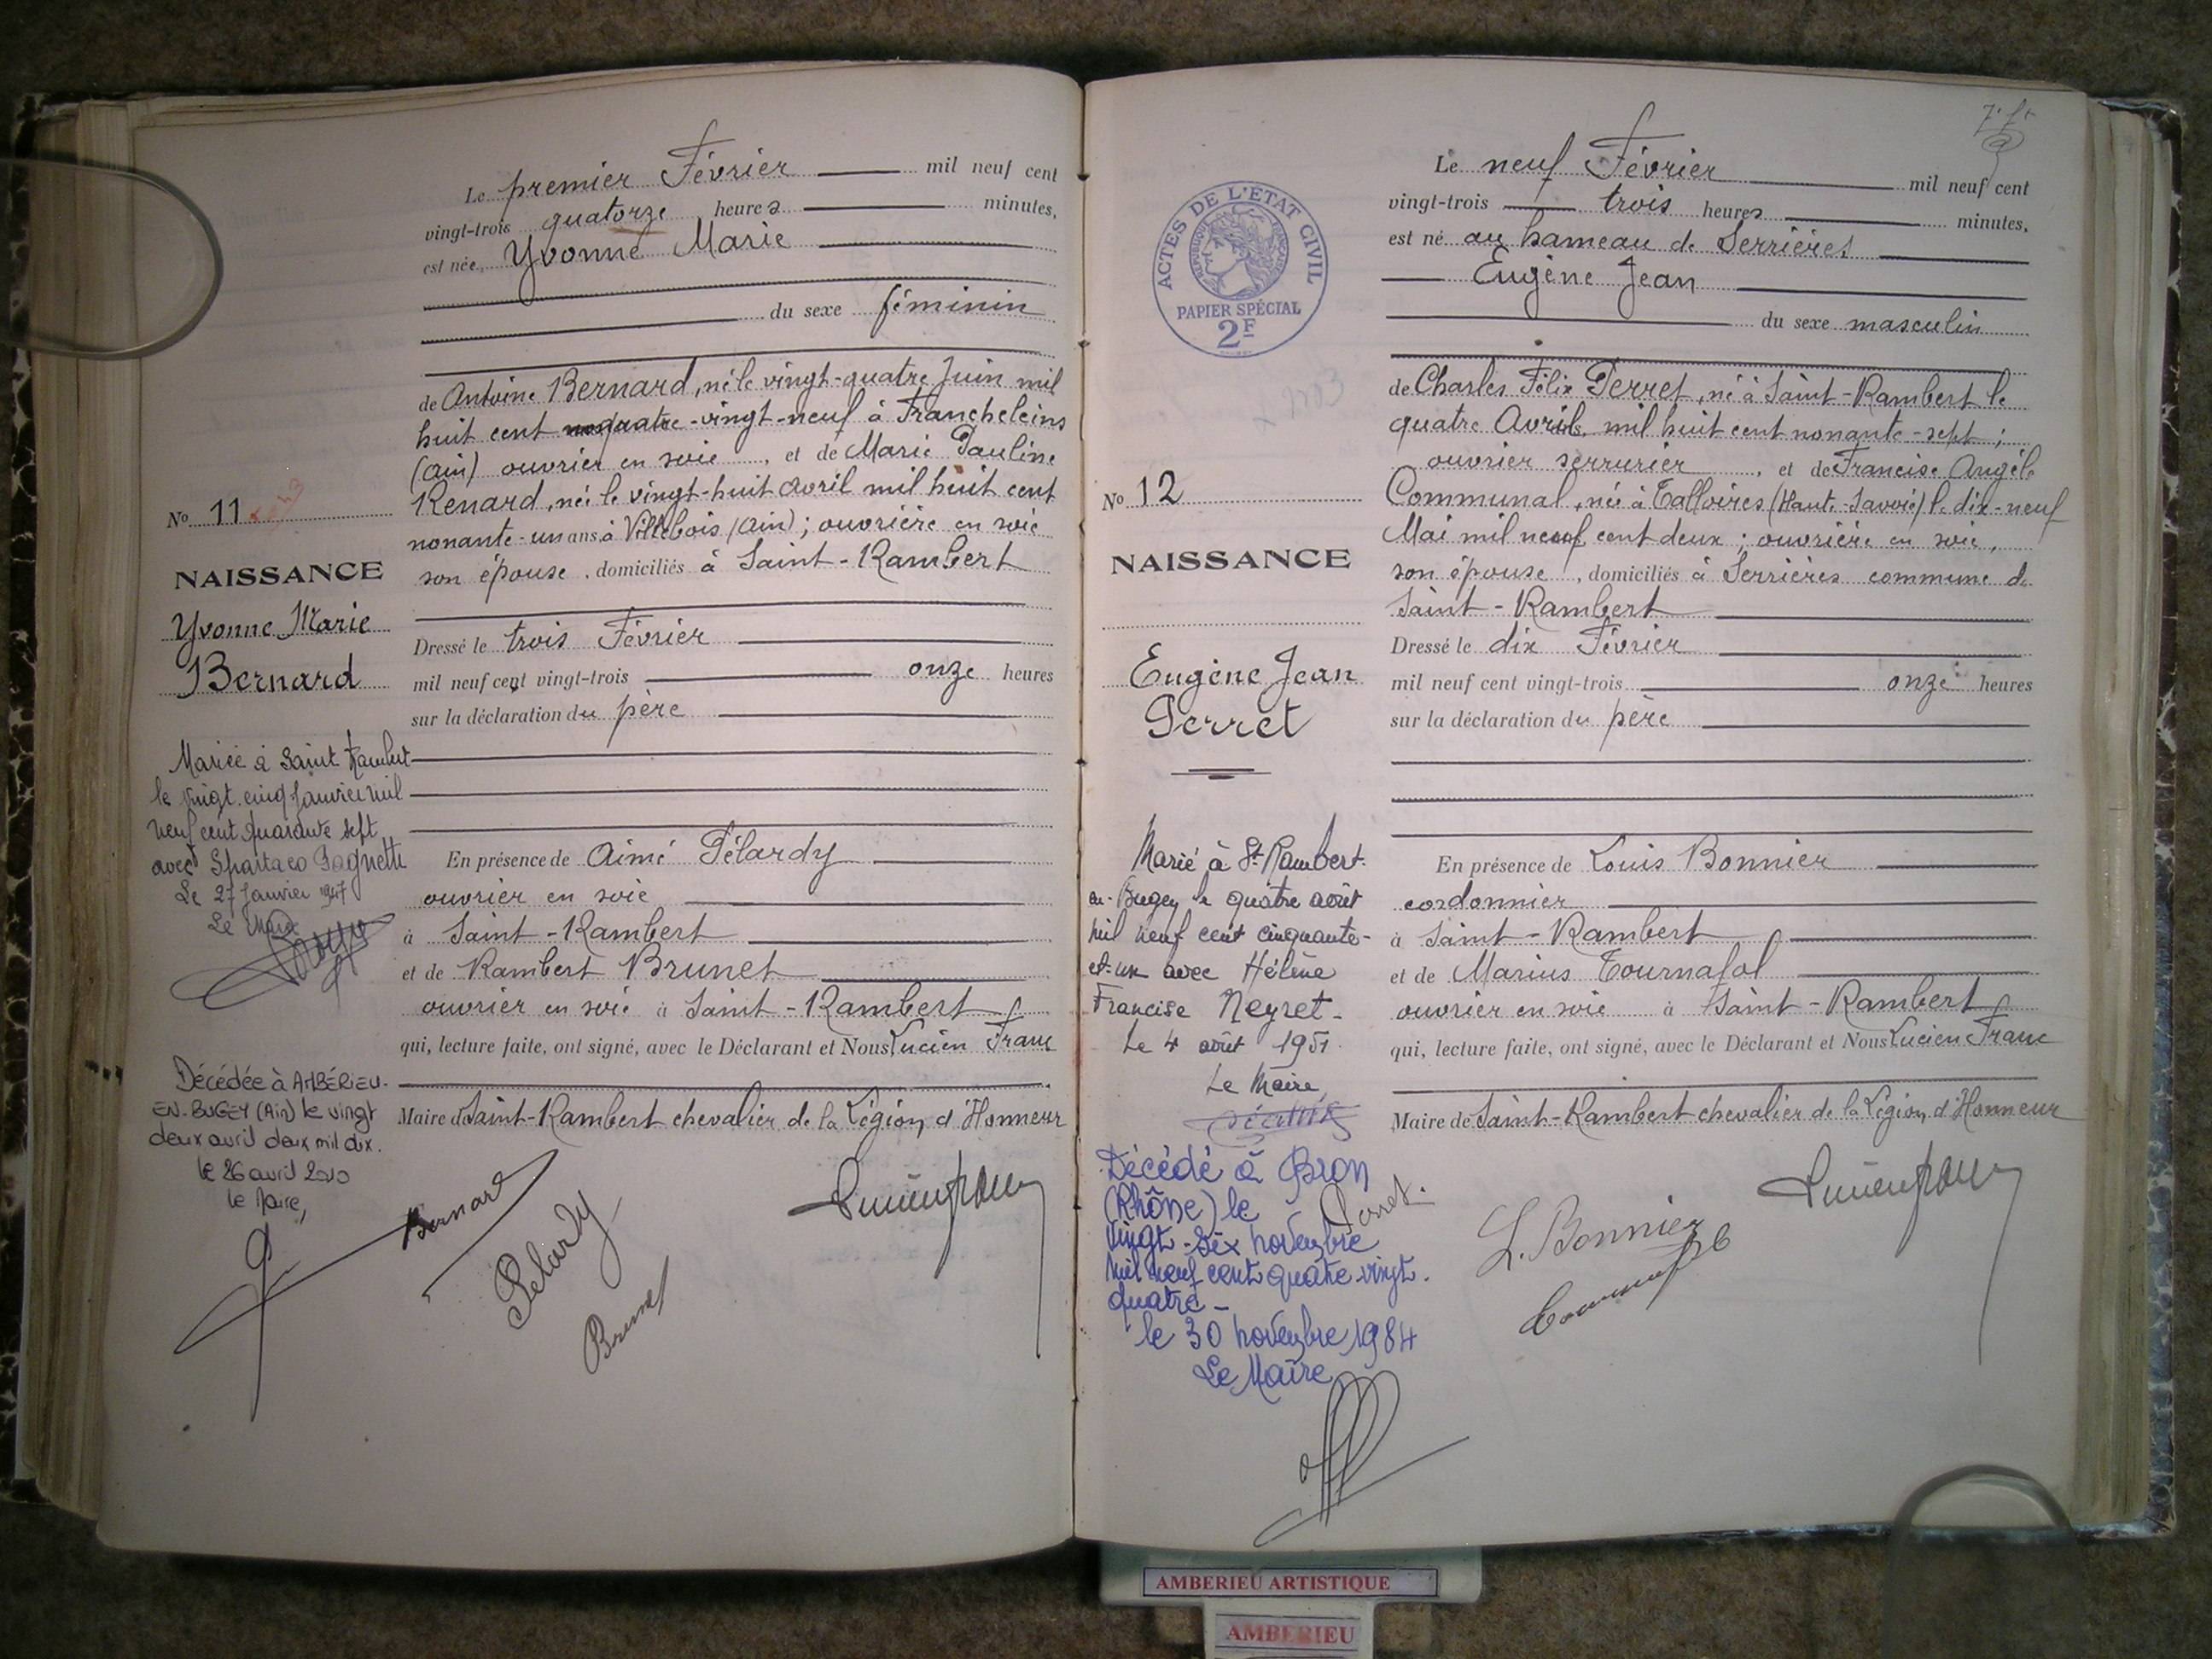 Le premier Février mil neuf cent
vingt-trois quatorze heures minutes,
est née, Yvonne Marie
du sexe féminin
de Antoine Bernard, né le vingt-quatre Juin mil
huit cent quatre-vingt-neuf à Francheleins
(Ain) ouvrier en soie, et de Marie Pauline
Renard, née le vingt-huit Avril mil huit cent
nonante-un ans à Villebois (Ain); ouvrière en soie
son épouse, domiciliés à Saint-Rambert
No 11
NAISSANCE
Yvonne Marie
Bernard
Dressé le trois Février
mil neuf cent vingt-trois onze heures
sur la déclaration du père
Mariée à Saint Rambert
le vingt cinq janvier mil
neuf cent quarante sept
avec Spartaco Pagnetti
Le 27 Janvier 1947
Le Maire
En présence de Aimé Pélardy
ouvrier en soie
à Saint-Rambert
et de Rambert Brunet
ouvrier en soie à Saint-Rambert
qui, lecture faite, ont signé, avec le Déclarant et Nous Lucien Franc
Maire de Saint-Rambert chevalier de la Légion d'Honneur
Décédée à AMBÉRIEU-
EN-BUGEY (Ain) le vingt
deux avril deux mil dix.
le 26 avril 2010
le Maire,
Bernard
Pelardy
Brunet
Lucien Franc
Le neuf Février mil neuf cent
vingt-trois trois heures minutes,
est né au hameau de Serrières
Eugène Jean
du sexe masculin
ACTES DE L'ETAT CIVIL
REPUBLIQUE FRANÇAISE
PAPIER SPÉCIAL
2F
de Charles Félix Perret, né à Saint-Rambert le
quatre Avril mil huit cent nonante-sept;
ouvrier serrurier, et de Francise Angèle
Communal, née à Talloires (Haute-Savoie) le dix-neuf
Mai mil neuf cent deux; ouvrière en soie,
son épouse, domiciliés à Serrières commune de
Saint-Rambert
No 12
NAISSANCE
Eugène Jean
Perret
Dressé le dix Février
mil neuf cent vingt-trois onze heures
sur la déclaration du père
Marié à St Rambert-
en-Bugey le quatre août
mil neuf cent cinquante-
et-un avec Hélène
Francise Neyret-
Le 4 août 1951.
Le Maire,
En présence de Louis Bonnier
cordonnier
à Saint-Rambert
et de Marius Tournafol
ouvrier en soie à Saint-Rambert
qui, lecture faite, ont signé, avec le Déclarant et Nous Lucien Franc
Maire de Saint-Rambert chevalier de la Légion d'Honneur
Décédé à Bron
(Rhône) le
vingt-six novembre
mil neuf cent quatre-vingt-
quatre-
le 30 novembre 1984
Le Maire
Perret
L. Bonnier
Lucien Franc
AMBERIEU ARTISTIQUE
AMBERIEU